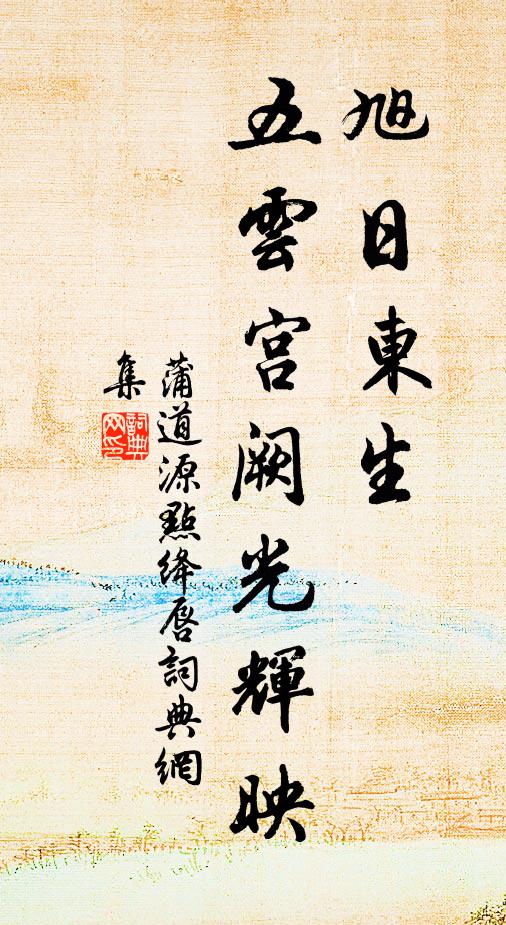 旭日東生
五雲宫阙光輝映
蒲道源點绛唇詞典網
集
詞典
网印